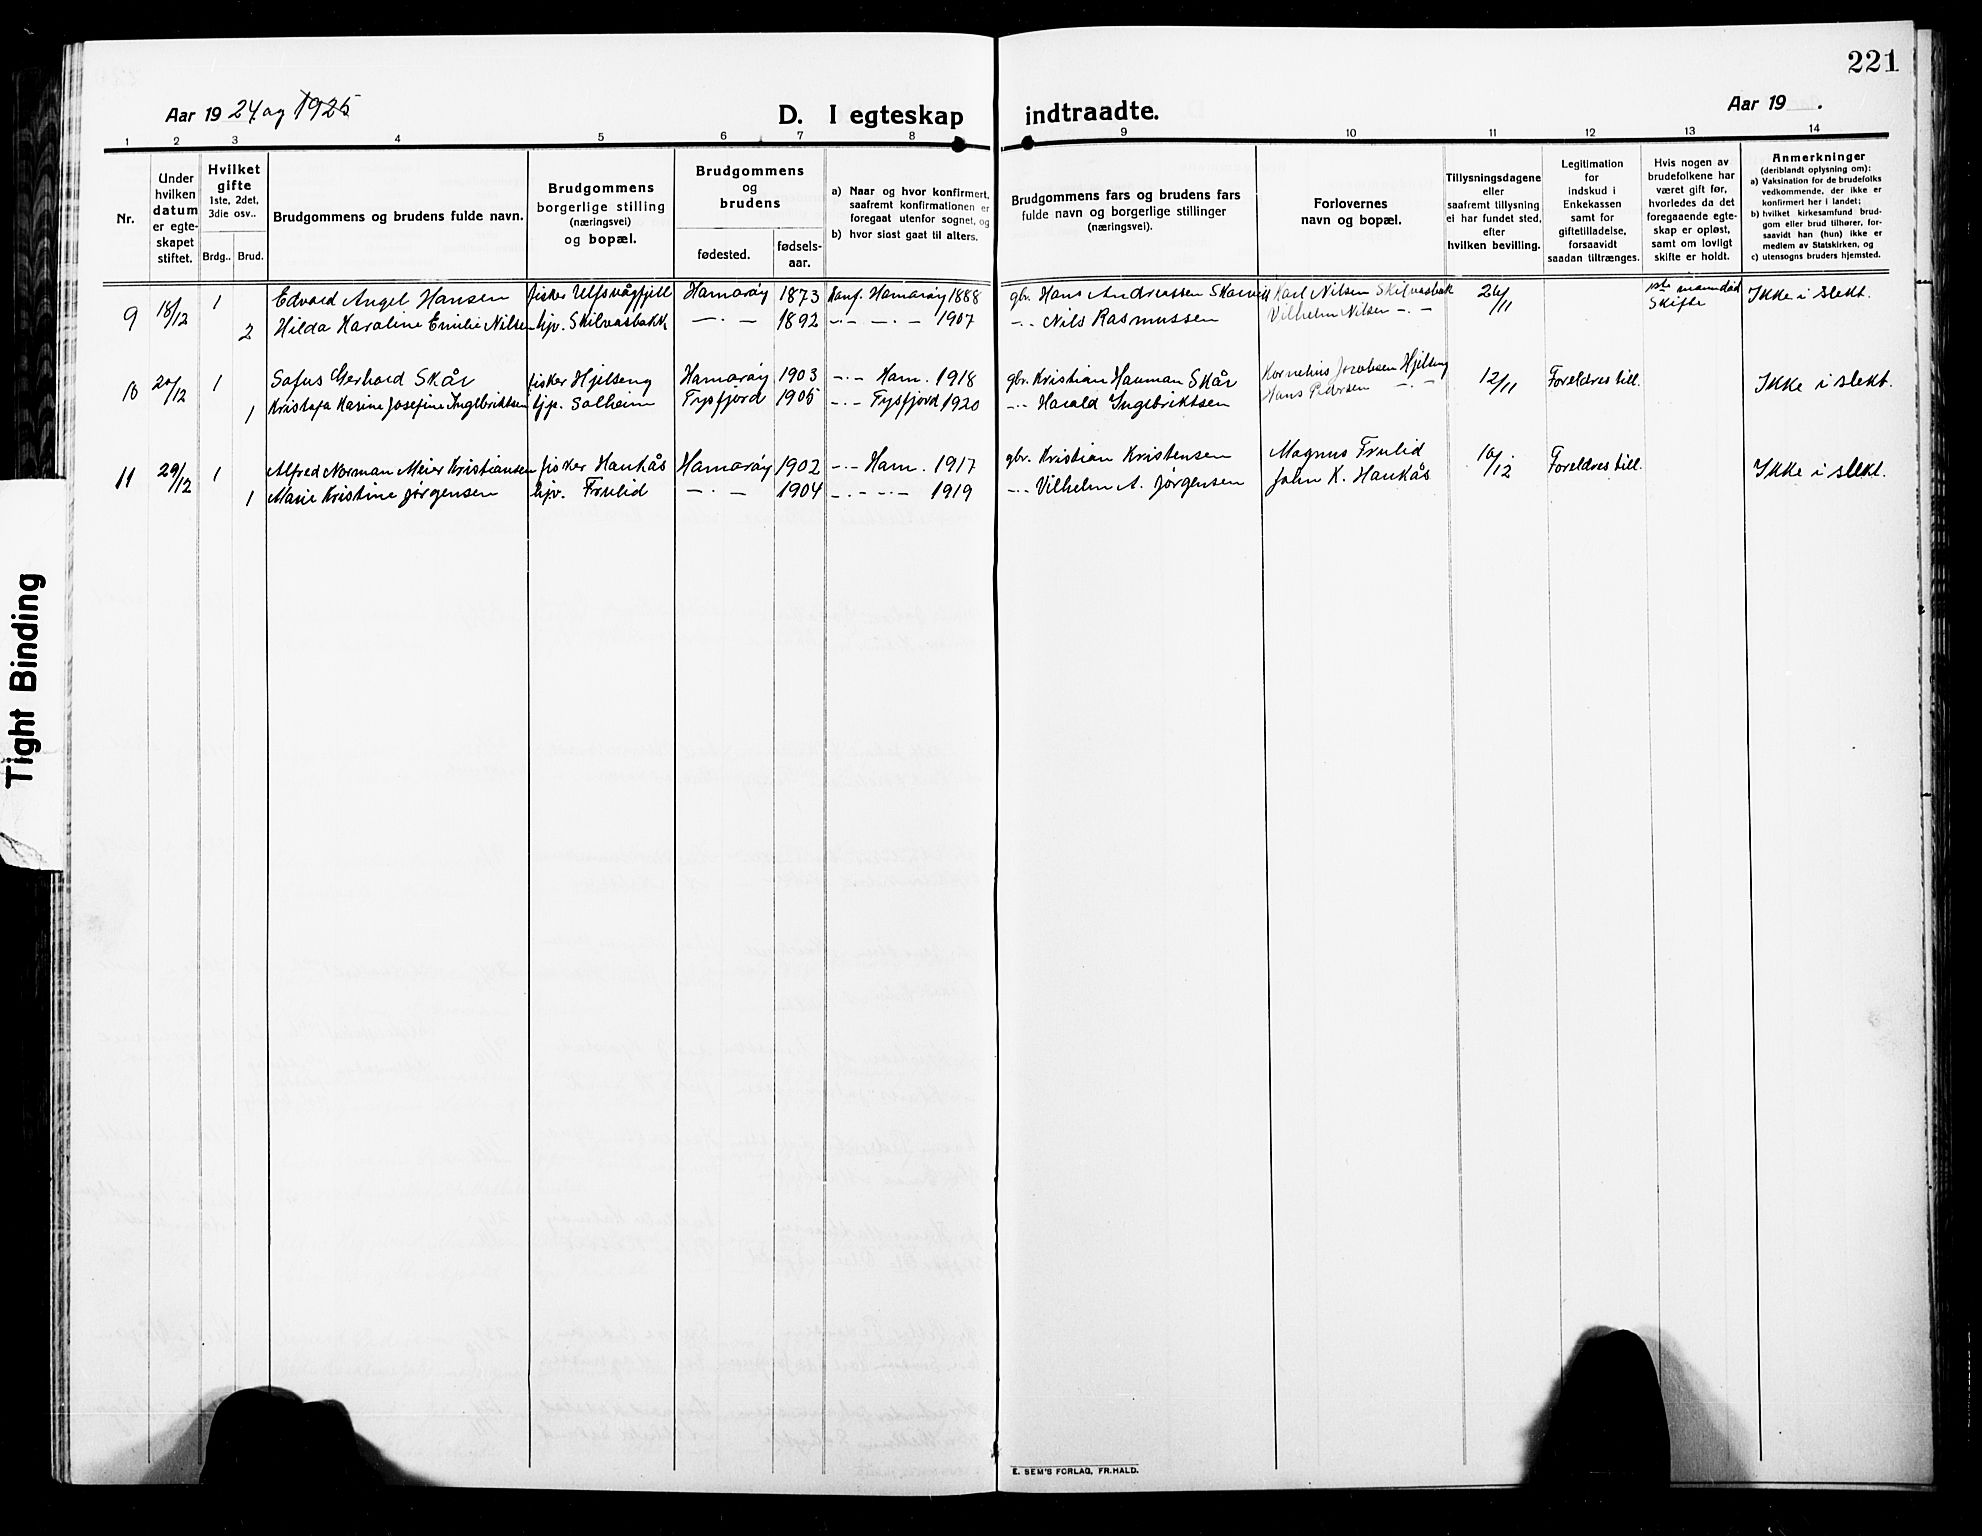 221
Aar 1924 og 1925
D. I egteskap indtraadte.
Aar 19 .
1 2 3 4 5 6 7 8 9 10 11 12 13 14
Nr.
Under hvilken datum er egte-skapet stiftet.
Hvilket gifte 1ste, 2det, 3die osv..
Brdg.. Brud.
Brudgommens og brudens fulde navn.
Brudgommens borgerlige stilling (næringsvei) og bopæl.
Brudgommens og brudens
fødested.
fødsels-aar.
a) Naar og hvor konfirmert, saafremt konfirmationen er foregaat utenfor sognet, og
b) hvor sidst gaat til alters.
Brudgommens fars og brudens fars fulde navn og borgerlige stillinger (næringsvei).
Forlovernes navn og bopæl.
Tillysningsdagene eller saafremt tillysning ei har fundet sted, efter hvilken bevilling.
Legitimation for indskud i Enkekassen samt for giftetilladelse, forsaavidt saadan tiltrænges.
Hvis nogen av brudefolkene har været gift før, hvorledes da det foregaaende egte-skap er opløst, samt om lovligt skifte er holdt.
Anmerkninger (deriblandt oplysning om):
a) Vaksination for de brudefolks vedkommende, der ikke er konfirmert her i landet;
b) hvilket kirkesamfund brud-gom eller brud tilhører, for-saavidt han (hun) ikke er medlem av Statskirken, og
c) utensogns bruders hjemsted.
9 18/12 1 Edvard Angel Hansen fisker Ulfsvågfjell Hamarøy 1873 Konf. Hamarøy 1888 gbr. Hans Andreassen Karl Nilsen Skilvasbak 26/11 1ste mann død Skifte Ikke i slekt.
2 Hilda Karoline Emilie Nilsen hjv. Skilvasbakk — . — 1892 — . — 1907 — . — Nils Rasmussen Vilhelm Nilsen — . —
10 20/12 1 Sofus Gerhard Skår fisker Hjelseng Hamarøy 1903 — . — Ham. 1918 gbr. Kristian Hauman Skår Kornelius Jacobsen Hjelseng 12/11 Foreldres till. Ikke i slekt.
1 Kristofa Karine Josefine Ingebriktsen hjp. Solheim Tysfjord 1905 — . — Tysfjord 1920 — . — Harald Ingebriktsen Hans Pedersen — . —
11 29/12 1 Alfred Norman Meier Kristiansen fisker Haukås Hamarøy 1902 — . — Ham. 1917 gbr. Kristian Kristensen Magnus Frulid 10/12 Foreldres till. Ikke i slekt.
1 Marie Kristine Jørgensen hjv. Frulid — . — 1904 — . — . — 1919 — . — Vilhelm A. Jørgensen John K. Haukås
Tight Binding
E. SEM'S FORLAG, FR.HALD.